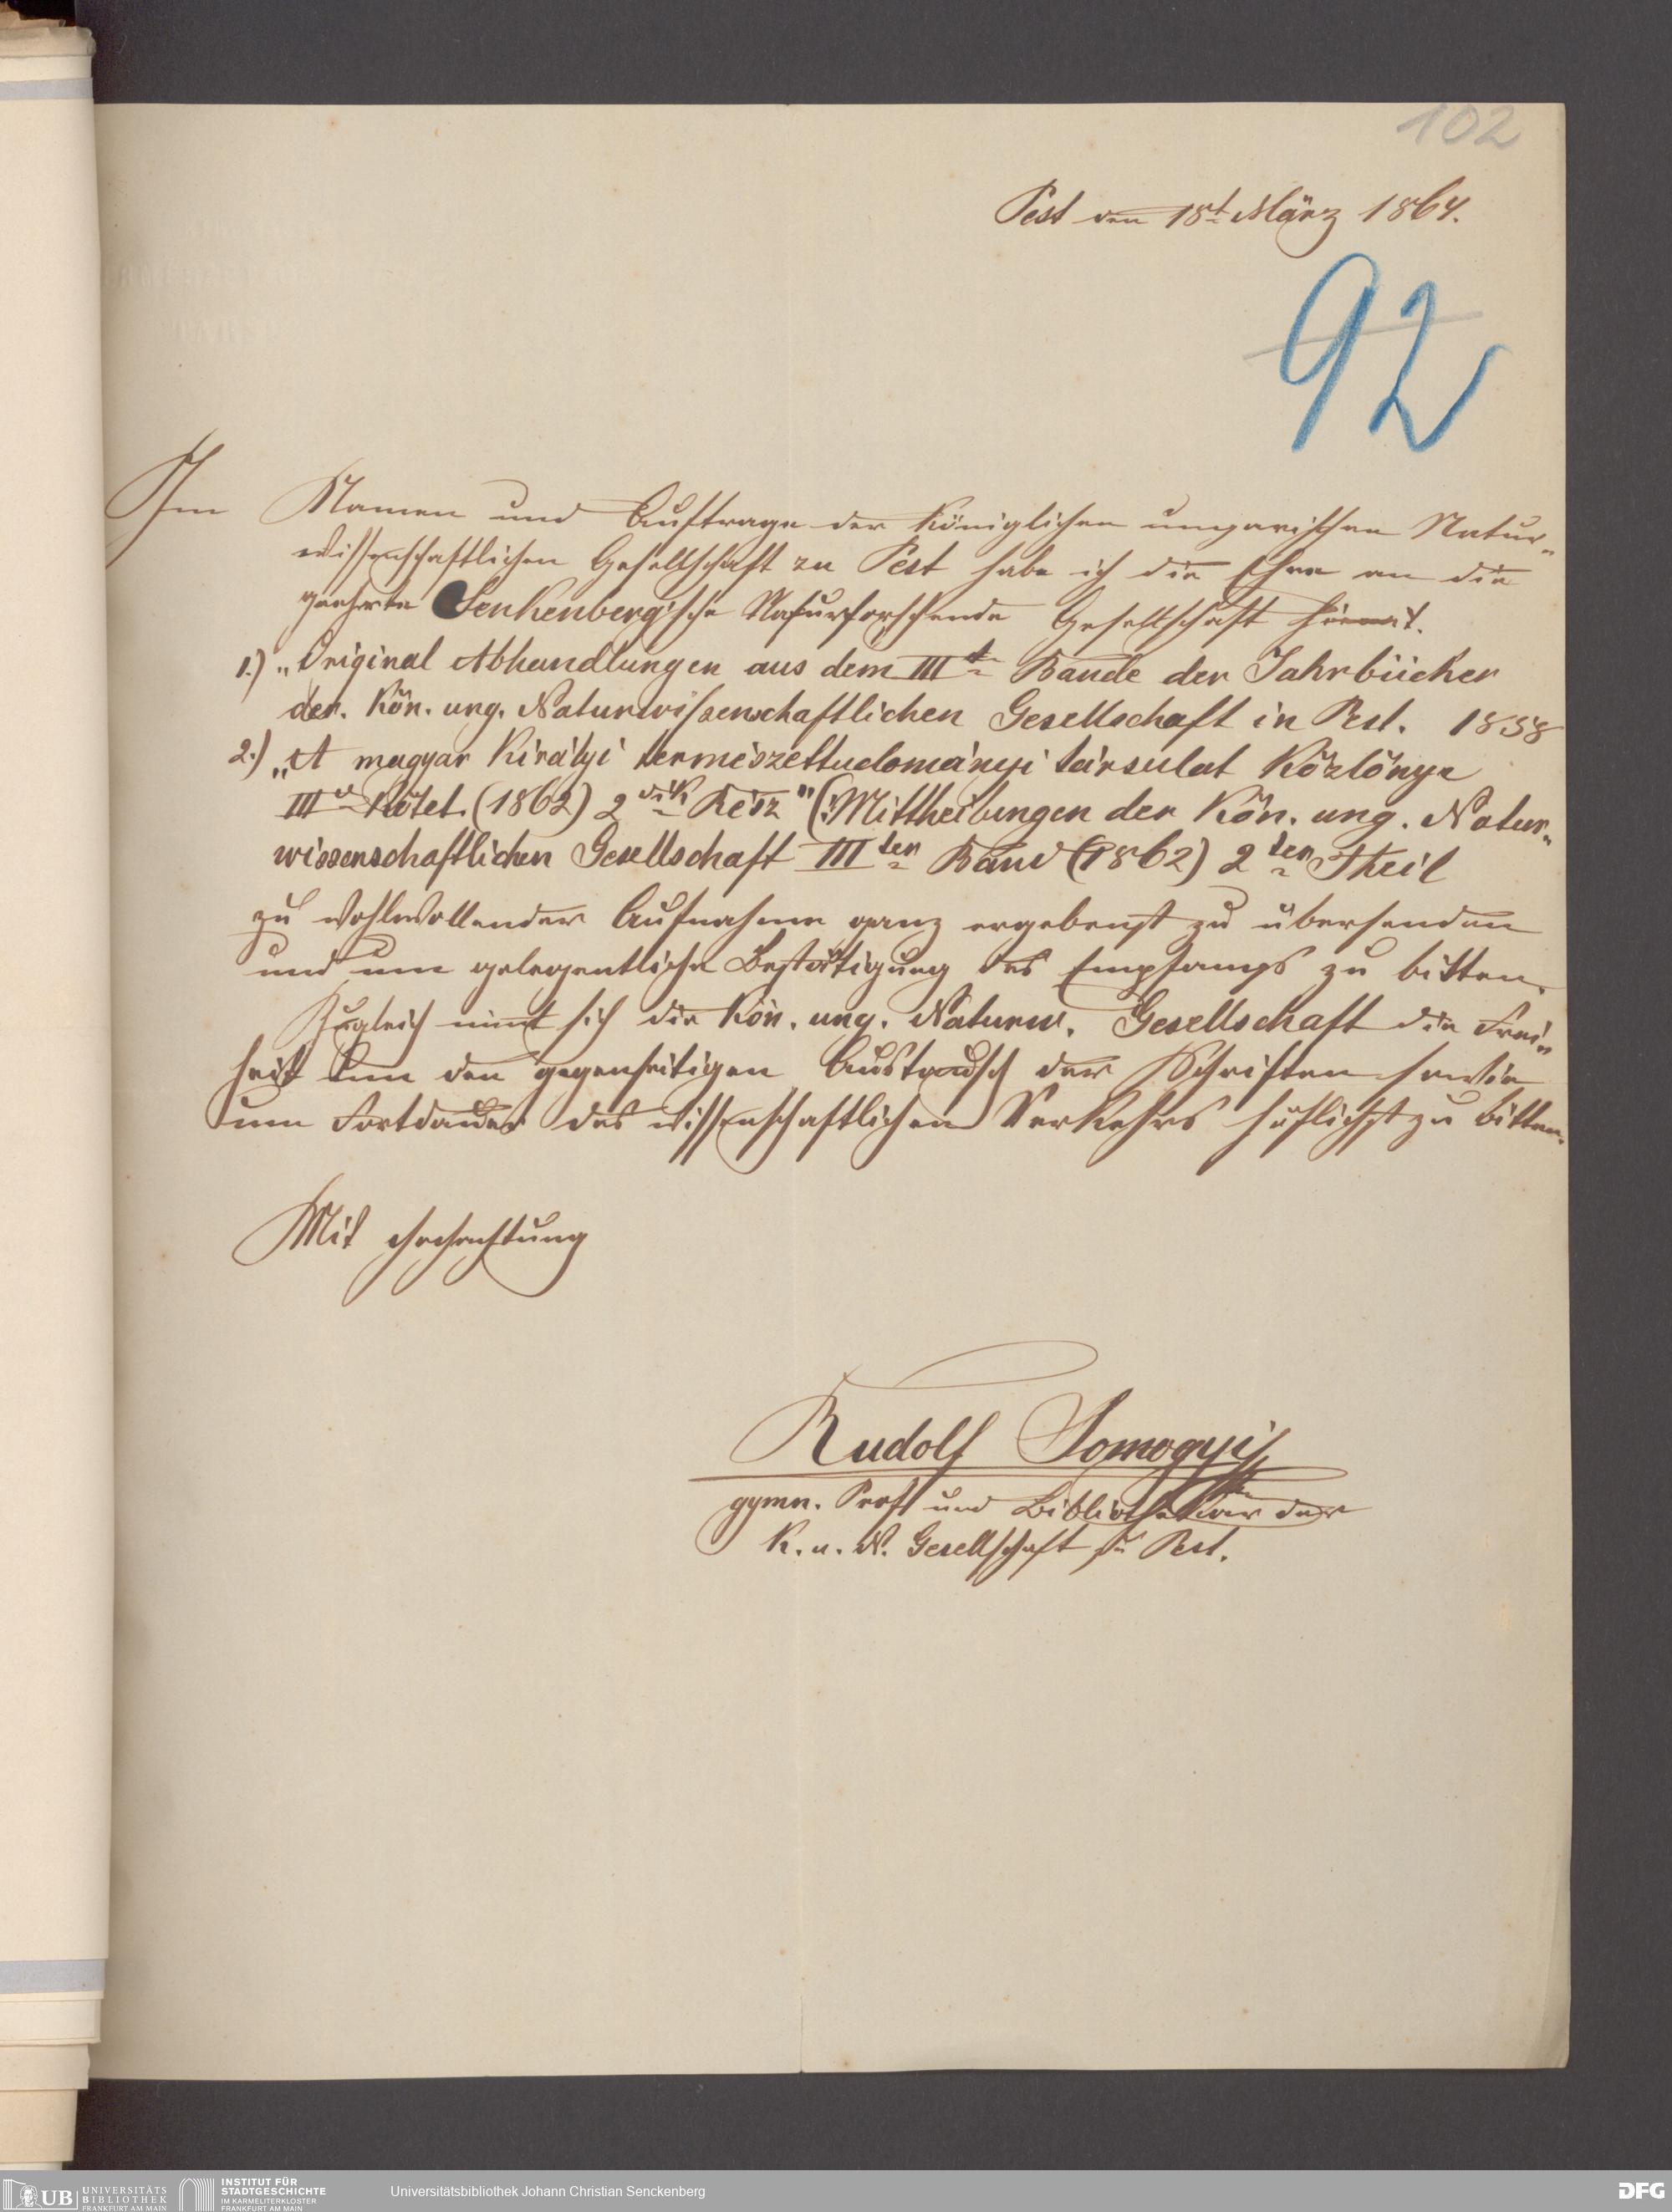 102
Pest den 18t März 1864.
92
Im Namen und Auftrage der Königlichen ungarischen Natur-
wissenschaftlichen Gesellschaft zu Pest habe ich die Ehre an die
geehrte Senkenberg'sche Naturforschende Gesellschaft hiemit.
1.) „Original Abhandlungen aus dem IIIt Bande der Jahrbücher
der. Kön. ung. Naturwissenschaftlichen Gesellschaft in Pest. 1858
2.) „A magyar Királyi természettudományi társulat Közlönye
III Kötet. (1862) 2dik Rész" (:Mittheilungen der Kön. ung. Natur-
wissenschaftlichen Gesellschaft IIIten Band (1862) 2ten Theil
zu wohlwollender Aufnahme ganz ergebenst zu übersenden
und um gelegentliche Bestätigung des Empfangs zu bitten.
Zugleich nimt sich die Kön. ung. Naturw. Gesellschaft die Frei-
heit um den gegenseitigen Austausch der Schriften sowie
um Fortdauer des wissenschaftlichen Verkehrs höflichst zu bitten.
Mit Hochachtung
Rudolf Somogyi
gymn. Prof und Bibliothekar der
K. u. N. Gesellschaft zu Pest.
UB UNIVERSITÄTS
BIBLIOTHEK
FRANKFURT AM MAIN
INSTITUT FÜR
STADTGESCHICHTE
IM KARMELITERKLOSTER
FRANKFURT AM MAIN
Universitätsbibliothek Johann Christian Senckenberg
DFG